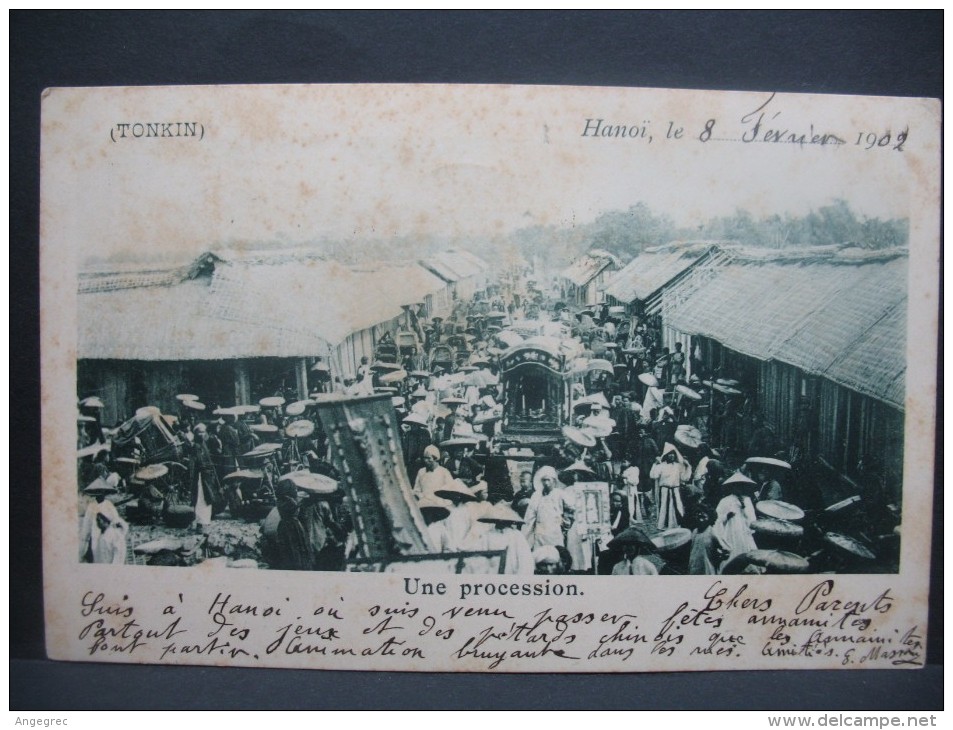 (TONKIN)
Hanoï, le 8 Février 1902
Une procession.
Chers Parents
Suis à Hanoi où suis venu passer fêtes annamites
Partout des jeux et des pétards chinois que les Annamites
font partir. Animation bruyante dans les rues. Amitiés.
Angegrec
www.delcampe.net